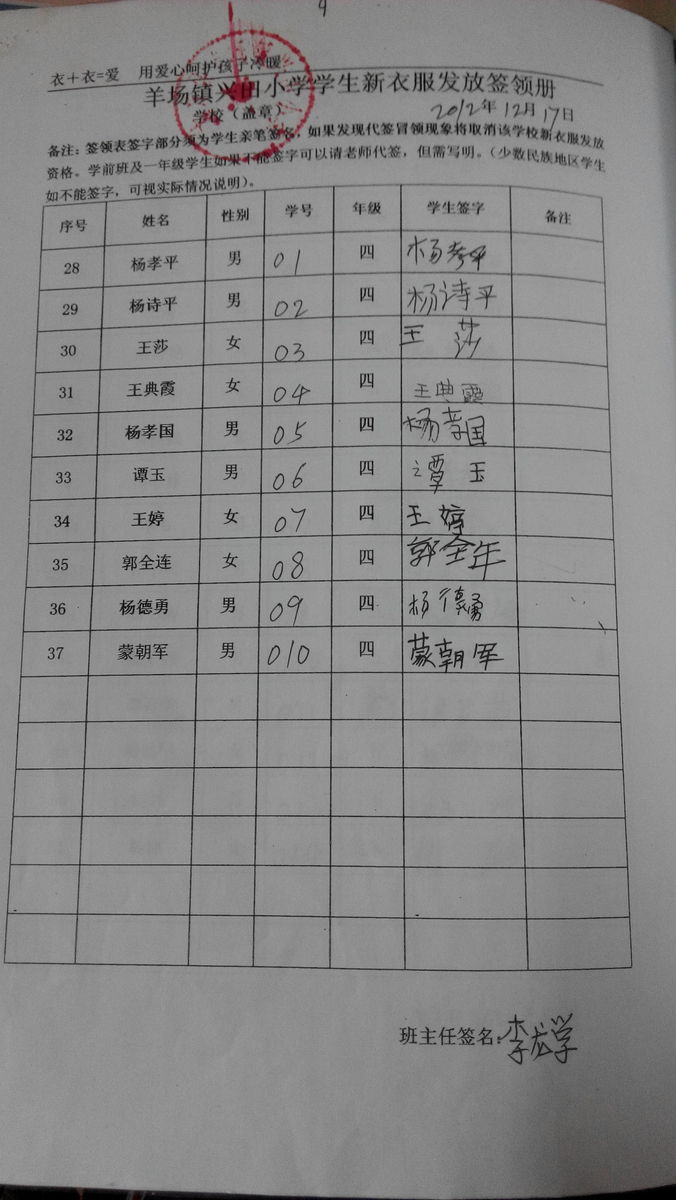 9
衣+衣=爱 用爱心呵护孩子冷暖
羊场镇兴田小学学生新衣服发放签领册
学校（盖章） 2012年12月17日
备注：签领表签字部分须为学生亲笔签名，如果发现代签冒领现象将取消该学校新衣服发放
资格。学前班及一年级学生如果不能签字可以请老师代签，但需写明。（少数民族地区学生
如不能签字，可视实际情况说明）。
序号 姓名 性别 学号 年级 学生签字 备注
28 杨孝平 男 01 四 杨孝平
29 杨诗平 男 02 四 杨诗平
30 王莎 女 03 四 王莎
31 王典霞 女 04 四 王典霞
32 杨孝国 男 05 四 杨孝国
33 谭玉 男 06 四 谭玉
34 王婷 女 07 四 王婷
35 郭全连 女 08 四 郭全年
36 杨德勇 男 09 四 杨德勇
37 蒙朝军 男 010 四 蒙朝军
班主任签名：李龙学